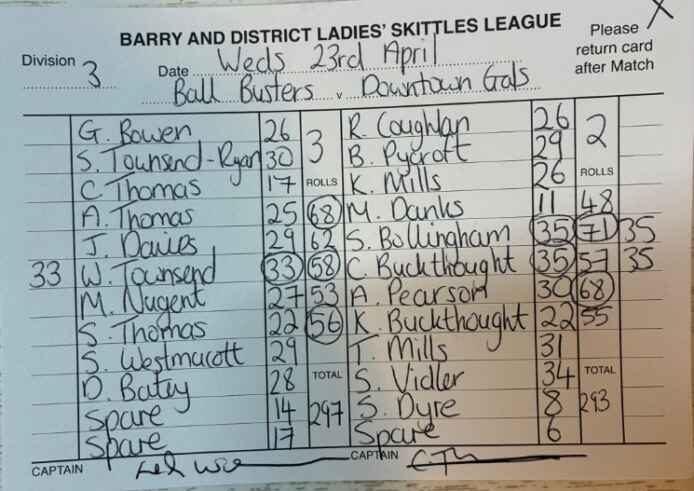 BARRY AND DISTRICT LADIES' SKITTLES LEAGUE
Please return card after Match
X
Division 3
Date Weds 23rd April
Ball Busters v Downtown Gals
G. Bowen 26 3 R. Coughlan 26 2
S. Townsend-Ryan 30 B. Pycroft 29
C. Thomas 17 ROLLS K. Mills 26 ROLLS
A. Thomas 25 68 M. Danks 11 48
J. Davies 29 62 S. Bollingham 35 71 35
33 W. Townsend 33 58 C. Buckthought 35 57 35
M. Nugent 27 53 A. Pearson 30 68
S. Thomas 22 56 K. Buckthought 22 55
S. Westmacott 29 T. Mills 31
D. Batey 28 TOTAL S. Vidler 34 TOTAL
Spare 14 297 S. Dyre 8 293
Spare 17 Spare 6
CAPTAIN CAPTAIN